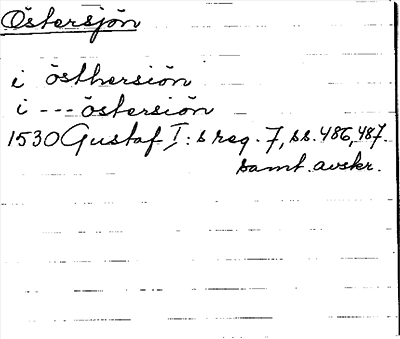 Östersjön
i östhersiön
i --- östersiön
1530 Gustaf I:s reg. 7, ss. 486, 487.
samt. avskr.